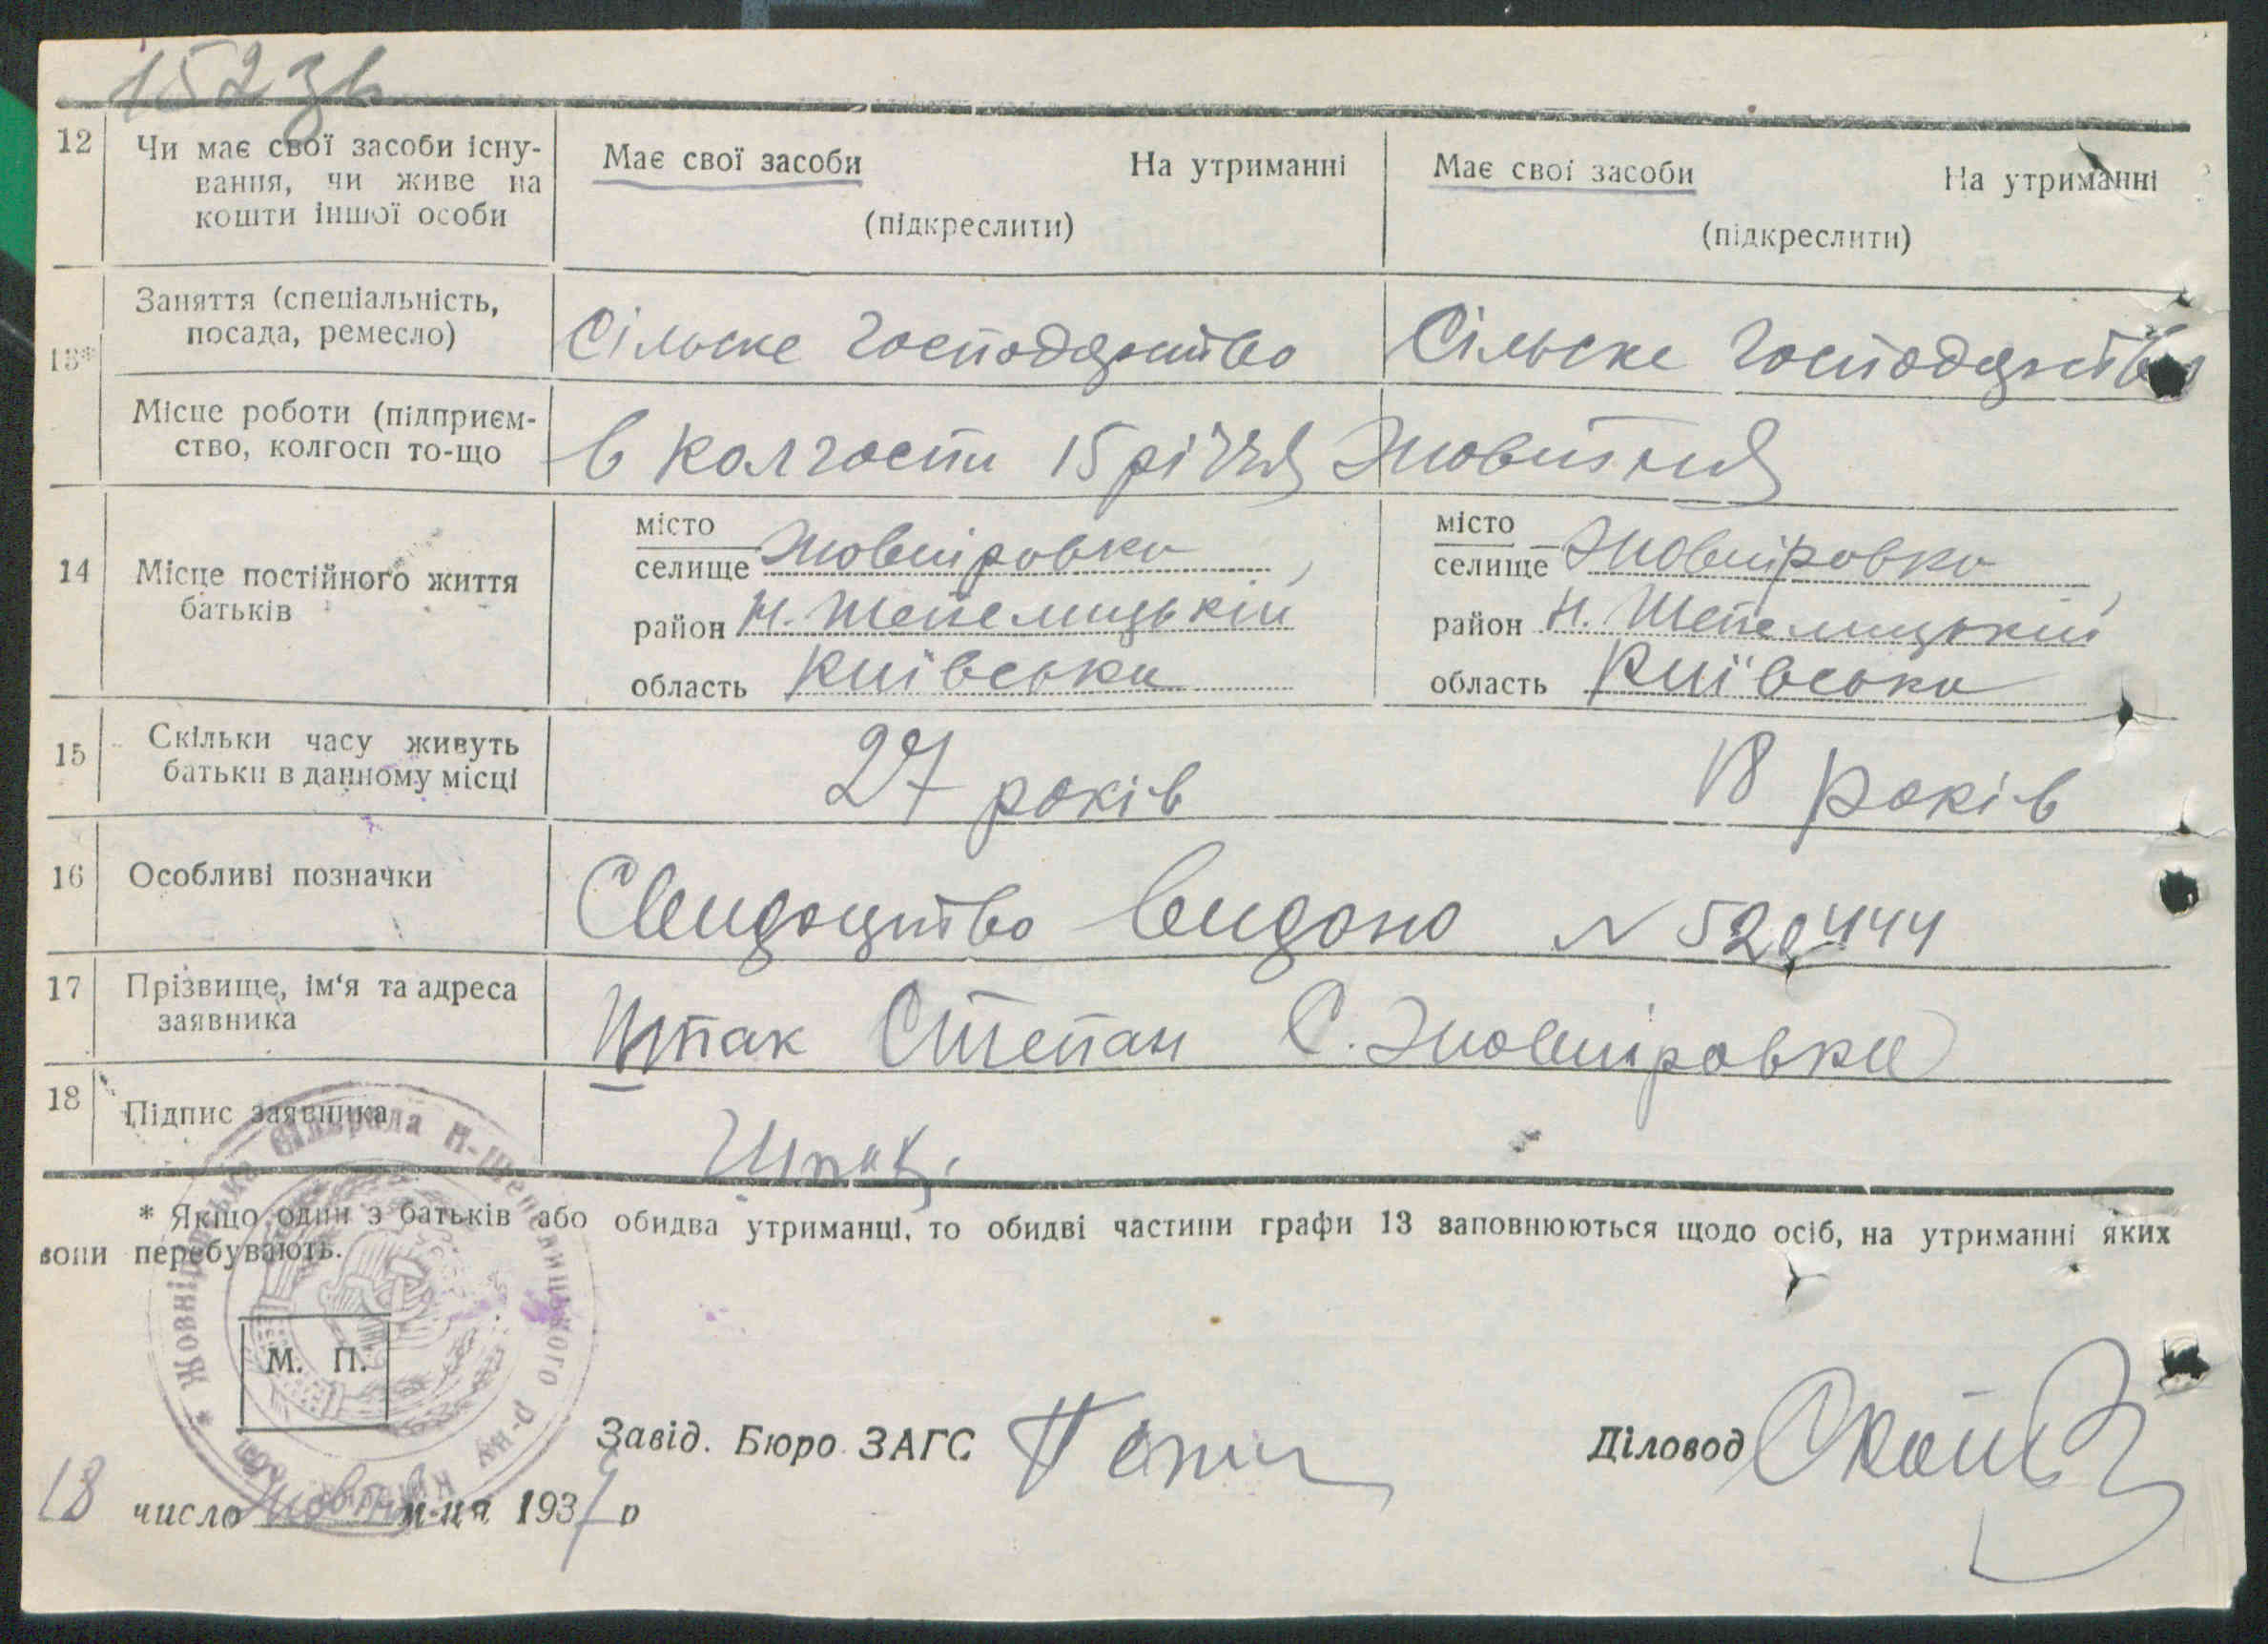 152 зв
12 Чи має свої засоби існу-
вання, чи живе на
кошти іншої особи
Має свої засоби На утриманні
(підкреслити)
Має свої засоби На утриманні
(підкреслити)
13* Заняття (спеціальність,
посада, ремесло)
Сільске господарство
Сільске господарство
Місце роботи (підприєм-
ство, колгосп то-що
в колгоспи 15 річчя Жовтня
14 Місце постійного життя
батьків
місто
селище Жовнировка,
район Н. Шепелицький
область Київська
місто
селище Жовнировка,
район Н. Шепелицький
область Київська
15 Скільки часу живуть
батьки в данному місці
27 років
18 років
16 Особливі позначки
Свидоцтво видоно № 520444
17 Прізвище, ім‘я та адреса
заявника
Шпак Степан С. Жовнировка
18 Підпис заявника
Шпак.
* Якщо один з батьків або обидва утриманці, то обидві частини графи 13 заповнюються щодо осіб, на утриманні яких
вони перебувають.
М. П.
Сільрада Н-Шепелицького р-ну
Завід. Бюро ЗАГС
Діловод
18 число Жовтня м-ця 1937 р